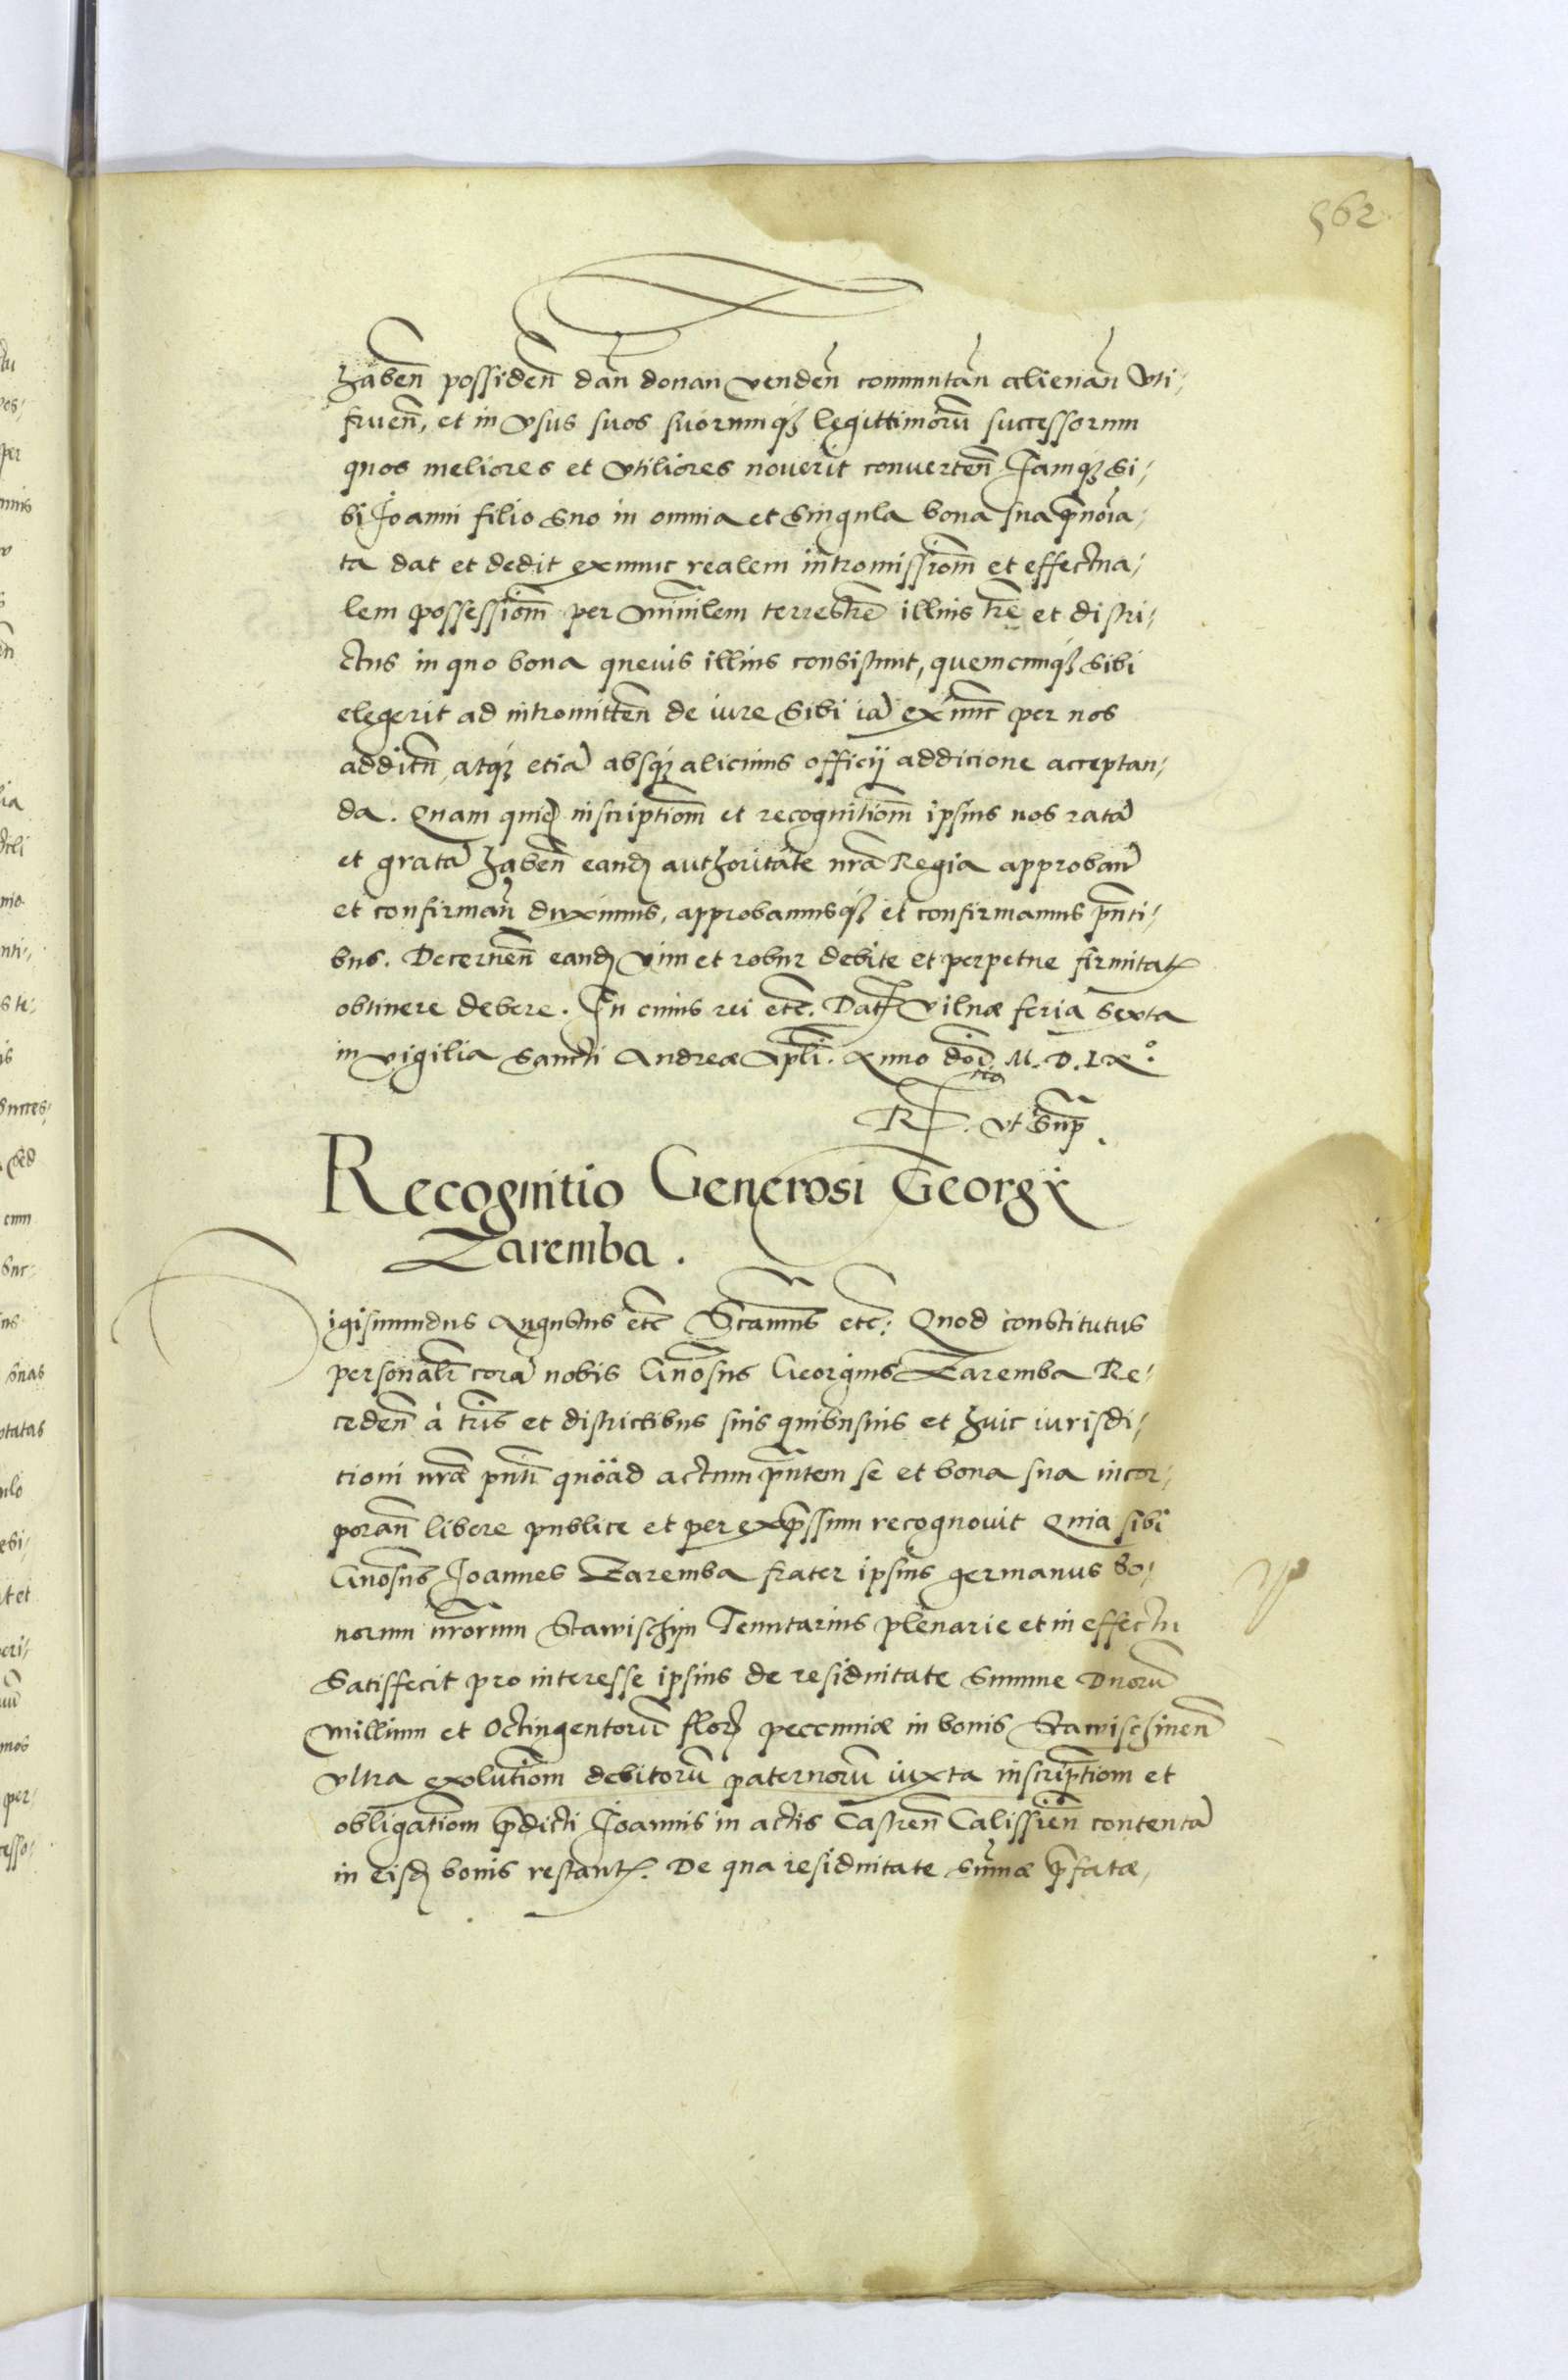 562
habeñ possideñ dañ donan vendeñ commutañ alienañ vti-
frueñ, et in vsus suos suorumq3 legittimorū successorum
quos meliores et vtiliores noverit converteñ Jamq3 si-
bi Joanni filio suo in omnia et singula bona sua p̄noīa-
ta dat et dedit exnunc realem intromissiom̄ et effectua-
lem possessiom̄ per Minr̄ilem terrestrē illius trē et distri-
ctus in quo bona quevis illius consistunt, quemcunq3 sibi
elegerit ad intromitteñ de iure sibi iā ex nunc per nos
additū, atq3 etiā absq3 alicuius officij addicione acceptan-
da. Quam quid̄ inscriptiom̄ et recognitiom̄ ipsius nos ratā
et gratā habeñ eand̄ authoritate nrā Regia approbañ
et confirmañ duximus, approbamusq3 et confirmamus pn̄ti-
bus. Decerneñ eand̄ vim et robur debite et perpetue firmitat̄
obtinere debere. In cuius rei etc. Dat̄ Vilnæ feria sexta
in vigilia Sancti Andreæ Apli. Anno doī M. D. LXº.
R tio. vt supr̄.
Recognitio Generosi Georgij
Zaremba.
igismundus Augustus etc Sc̄amus etc: Quod constitutus
personalr̄ corā nobis Gnōsus Georgius Zaremba Re-
cedeñ à tr̄is et districtibus suis quibusuis et huic iurisdi-
tioni nrǣ pn̄ti quöad actum pn̄tem se et bona sua incor-
porañ libere publice et per exp̄ssum recognovit Quia sibi
Gnōsus Joannes Zaremba frater ipsius germanus Bo-
norum nrōrum Stawischijn Tenutarius plenarie et in effectu
Satisfecit pro interesse ipsius de residuitate Summe Duorū
Millium et Octingentorū flor̄ peccuniæ in bonis Stawischineñ
vltra exolutiom̄ debitorū paternorū iuxta inscriptiom et
obligatiom p̄dicti Joannis in actis Castreñ Calissieñ contentā
in eisd̄ bonis restant̄. De qua residuitate Sum̄æ p̄fatæ,